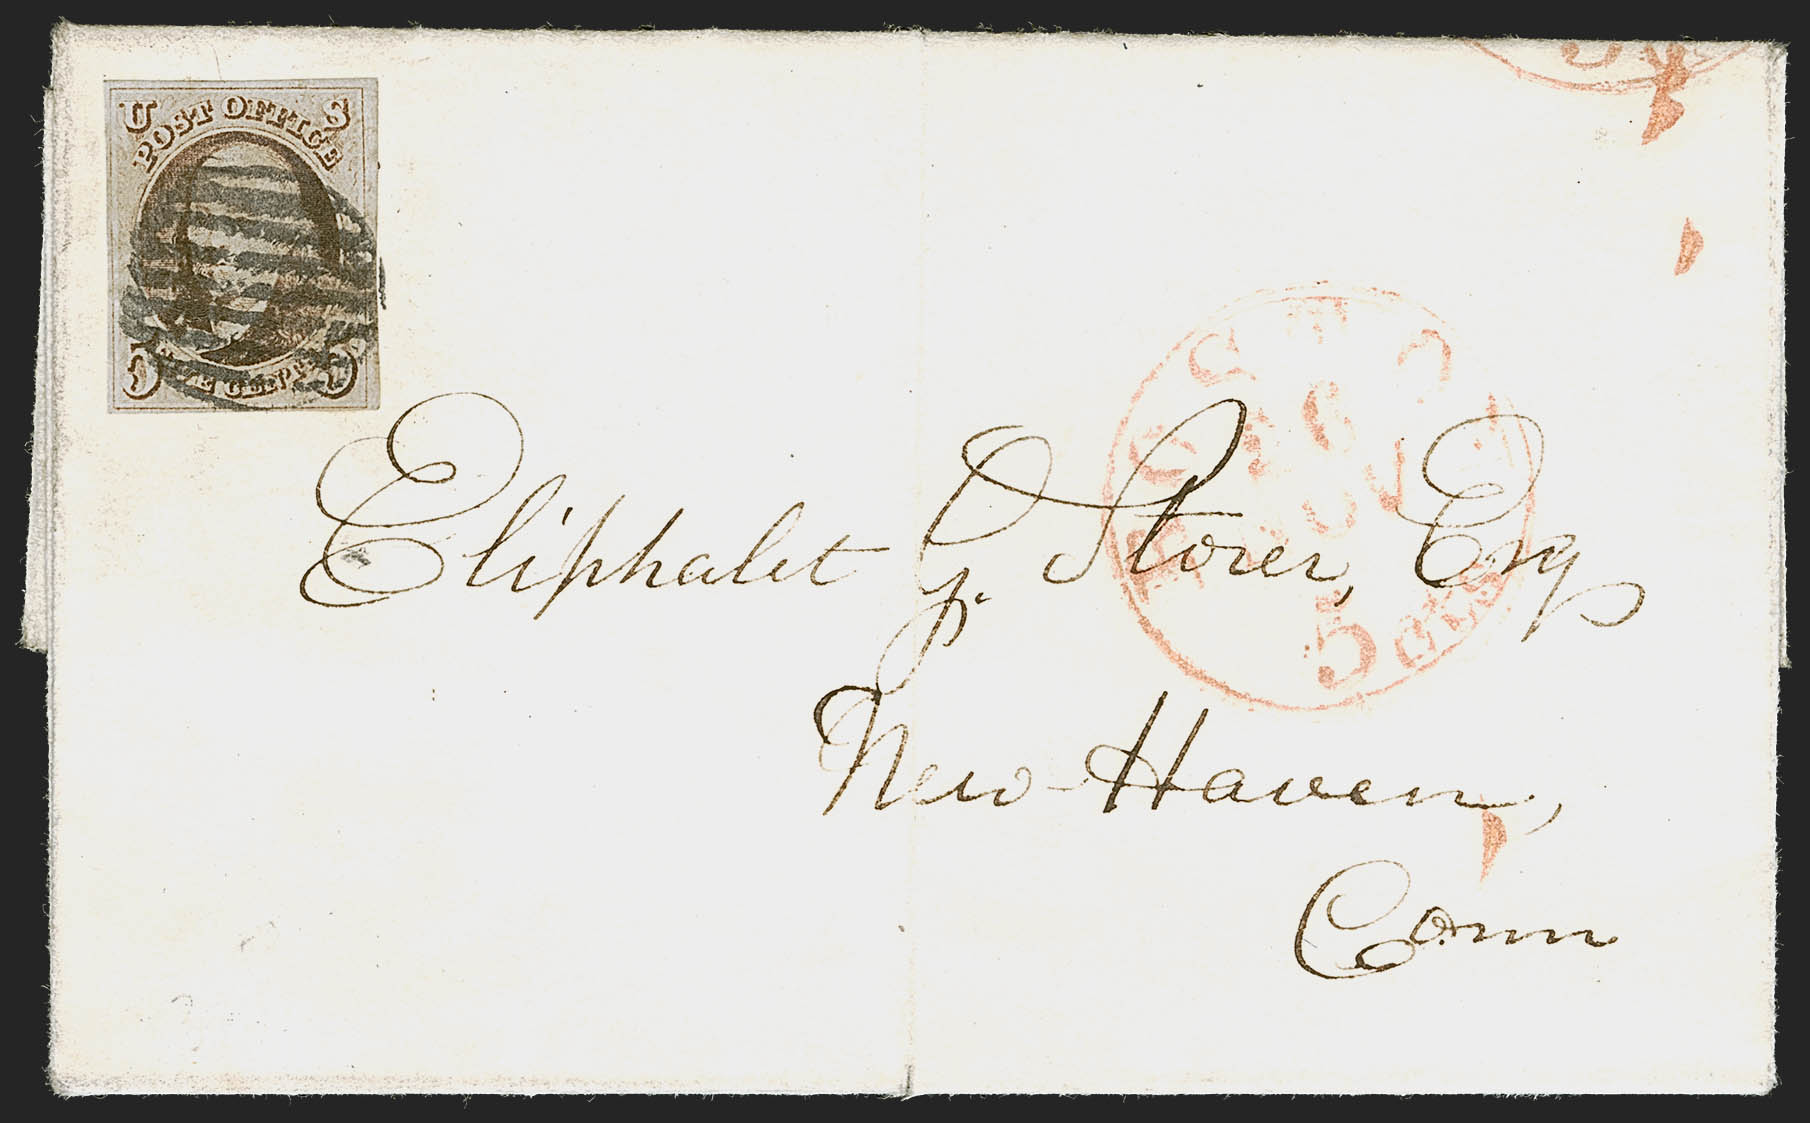 U S
POST OFFICE
5 5
Eliphalet G. Storer, Esq
New Haven,
Conn
5 cts